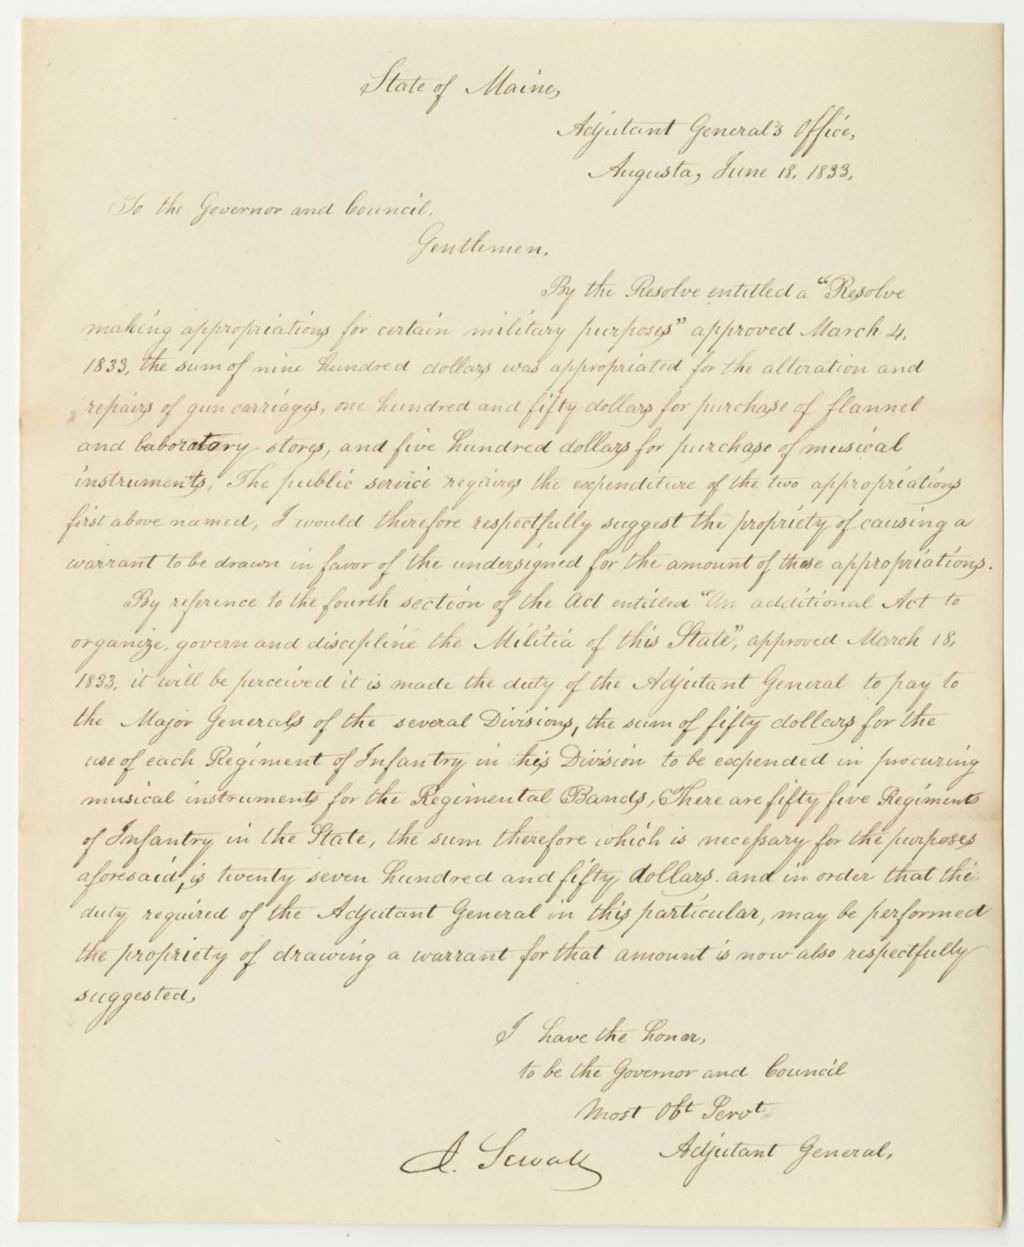 State of Maine,
Adjutant General's Office,
Augusta, June 18, 1833,
To the Governor and Council,
Gentlemen,
By the Resolve entitled a "Resolve
making appropriations for certain military purposes" approved March 4,
1833, the sum of nine hundred dollars was appropriated for the alteration and
repairs of gun carriages, one hundred and fifty dollars for purchase of flannel
and laboratory stores, and five hundred dollars for purchase of musical
instruments, The public service requires the expenditure of the two appropriations
first above named, I would therefore respectfully suggest the propriety of causing a
warrant to be drawn in favor of the undersigned for the amount of those appropriations.
By reference to the fourth section of the Act entitled "An additional Act to
organize, govern and discipline the Militia of this State", approved March 18,
1833, it will be perceived it is made the duty of the Adjutant General to pay to
the Major Generals of the several Divisions, the sum of fifty dollars for the
use of each Regiment of Infantry in his Division to be expended in procuring
musical instruments for the Regimental Bands, There are fifty five Regiments
of Infantry in the State, the sum therefore which is necessary for the purposes
aforesaid, is twenty seven hundred and fifty dollars. and in order that the
duty required of the Adjutant General in this particular, may be performed
the propriety of drawing a warrant for that amount is now also respectfully
suggested,
I have the honor,
to be the Governor and Council
Most Obt Servt
J. Sewall Adjutant General,